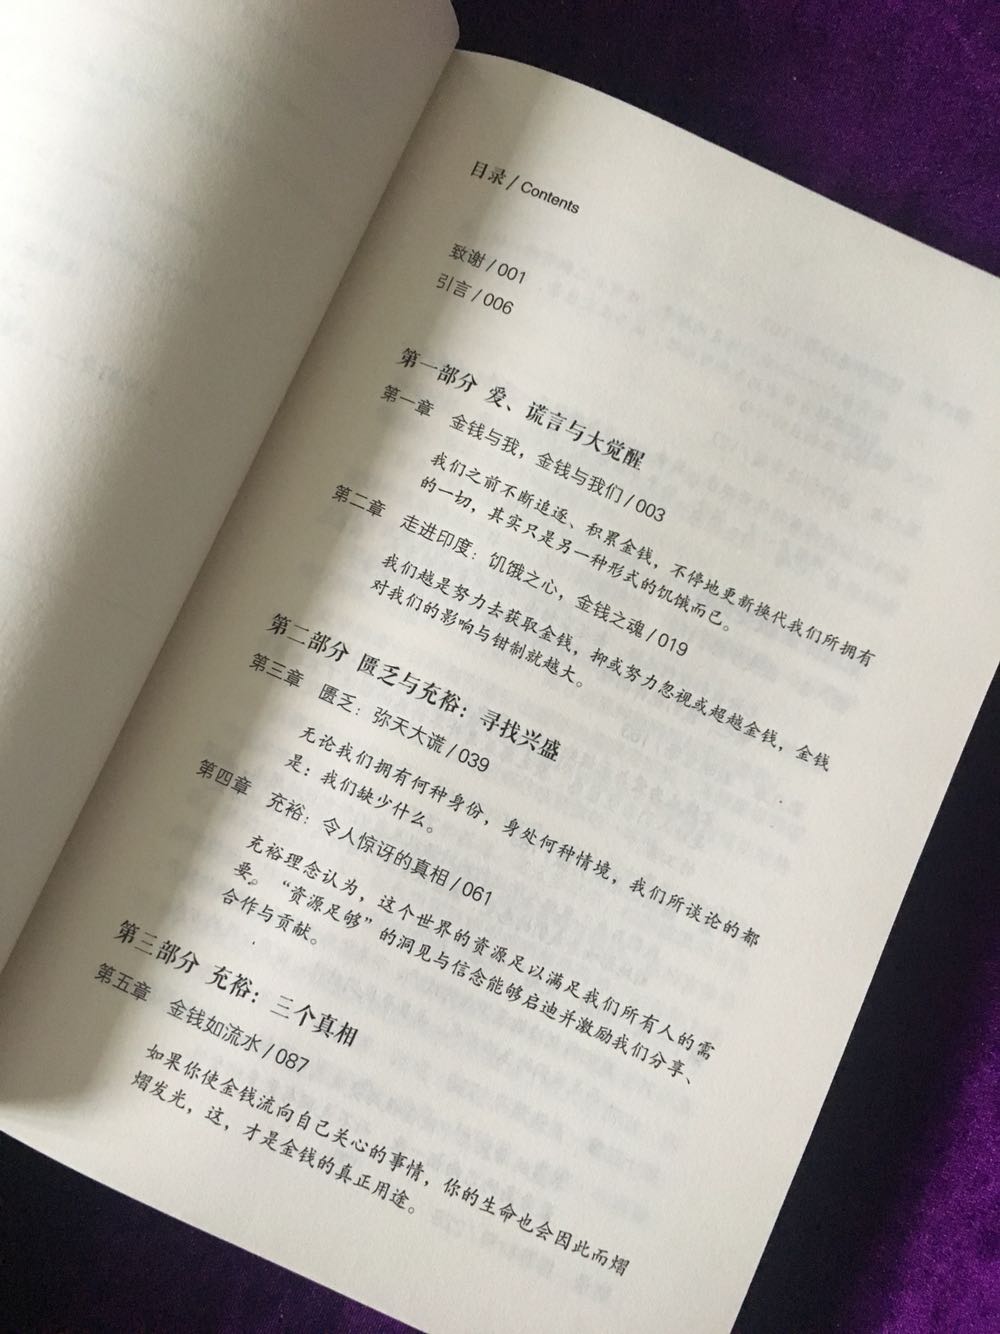 目录 / Contents
致谢 / 001
引言 / 006
第一部分 爱、谎言与大觉醒
第一章 金钱与我，金钱与我们 / 003
我们之前不断追逐、积累金钱，不停地更新换代我们所拥有
的一切，其实只是另一种形式的饥饿而已。
第二章 走进印度：饥饿之心，金钱之魂 / 019
我们越是努力去获取金钱，抑或努力忽视或超越金钱，金钱
对我们的影响与钳制就越大。
第二部分 匮乏与充裕：寻找兴盛
第三章 匮乏：弥天大谎 / 039
无论我们拥有何种身份，身处何种情境，我们所谈论的都
是：我们缺少什么。
第四章 充裕：令人惊讶的真相 / 061
充裕理念认为，这个世界的资源足以满足我们所有人的需
要。“资源足够”的洞见与信念能够启迪并激励我们分享、
合作与贡献。
第三部分 充裕：三个真相
第五章 金钱如流水 / 087
如果你使金钱流向自己关心的事情，你的生命也会因此而熠
熠发光，这，才是金钱的真正用途。